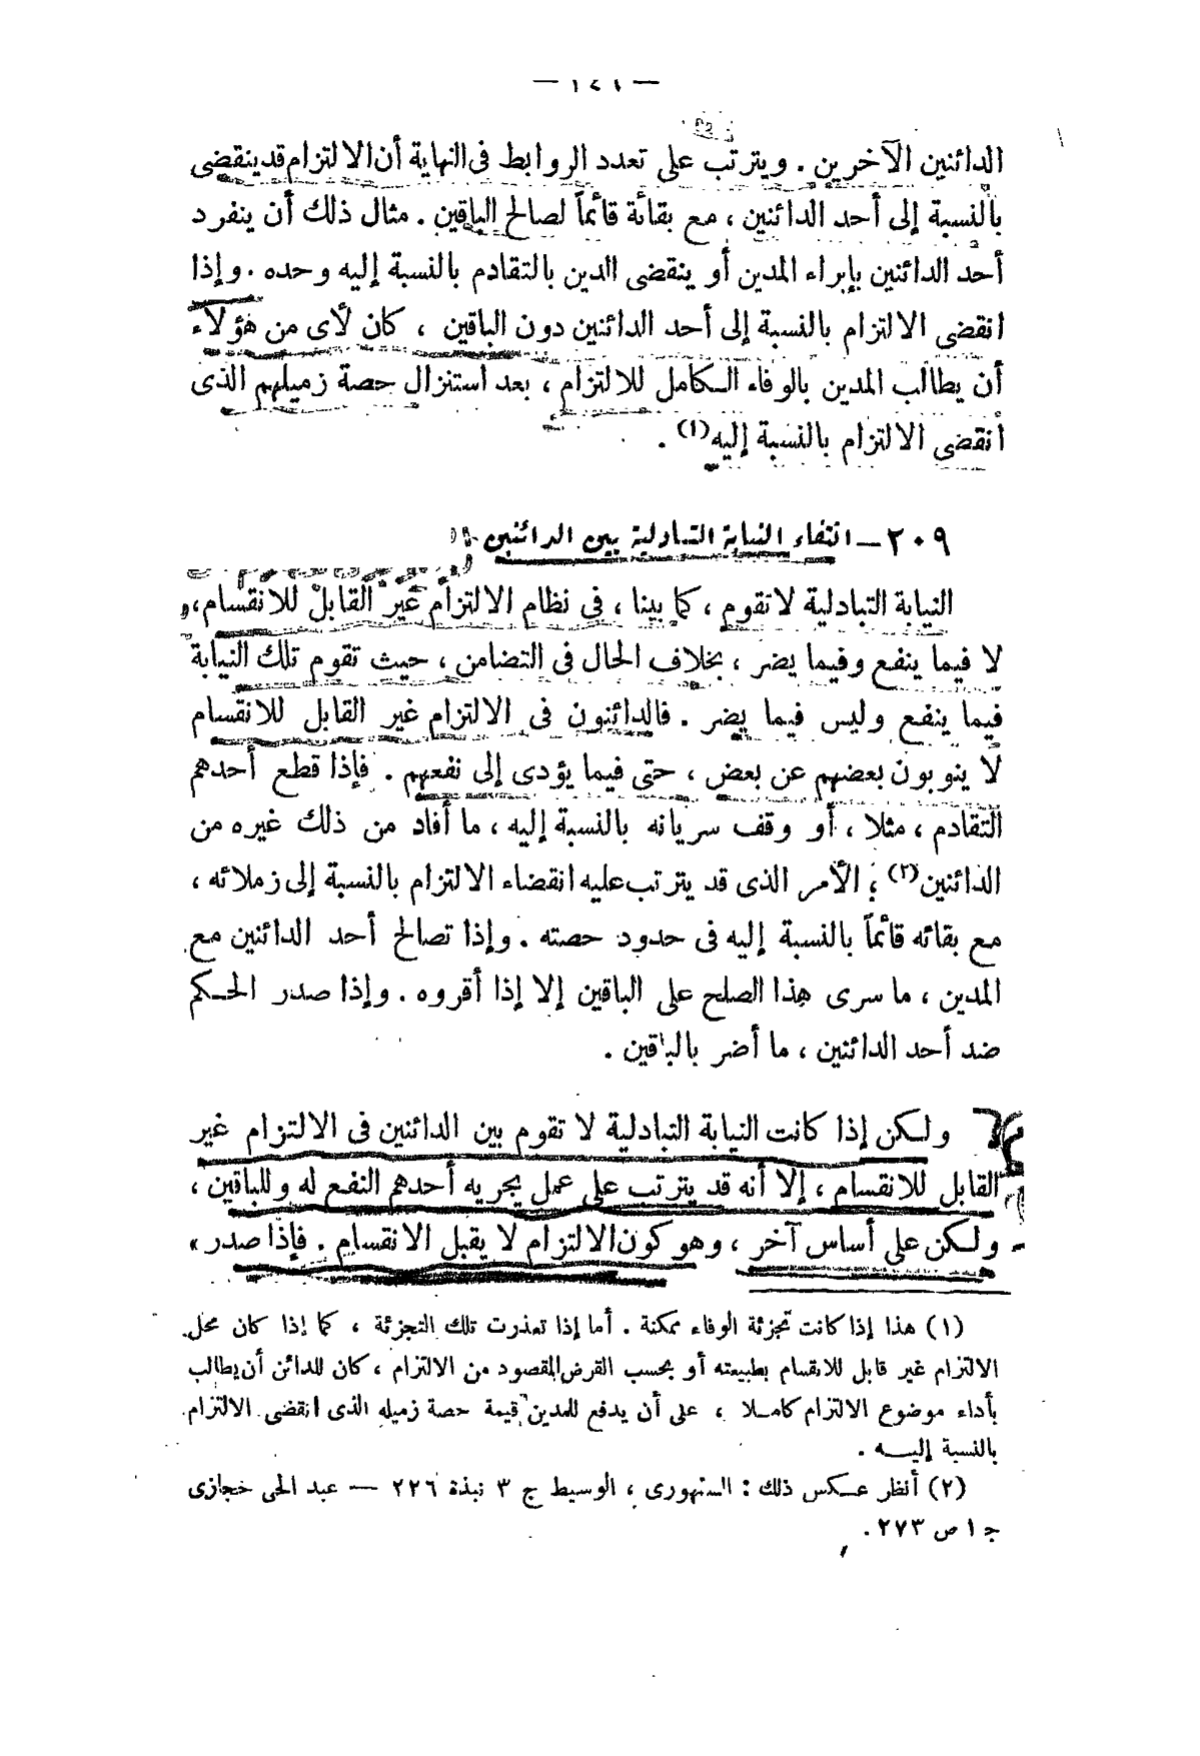 الدائنين الآخرين . ويترتب على تعدد الروابط فى النهاية أن الالتزام قد ينقضى
بالنسبة إلى أحد الدائنين ، مع بقائه قائماً لصالح الباقين . مثال ذلك أن ينفرد
أحد الدائنين بإبراء المدين أو ينقضى الدين بالتقادم بالنسبة إليه وحده . وإذا
انقضى الالتزام بالنسبة إلى أحد الدائنين دون الباقين ، كان لأى من هؤلاء
أن يطالب المدين بالوفاء الكامل للالتزام ، بعد استنزال حصة زميلهم الذى
انقضى الالتزام بالنسبة إليه (١) .
٢٠٩ – انتفاء النيابة التبادلية بين الدائنين
النيابة التبادلية لا تقوم ، كما بينا ، فى نظام الالتزام غير القابل للانقسام ،
لا فيما ينفع وفيما يضر ، بخلاف الحال فى التضامن ، حيث تقوم تلك النيابة
فيما ينفع وليس فيما يضر . فالدائنون فى الالتزام غير القابل للانقسام
لا ينوبون بعضهم عن بعض ، حتى فيما يؤدى إلى نفعهم . فإذا قطع أحدهم
التقادم ، مثلا ، أو وقف سريانه بالنسبة إليه ، ما أفاد من ذلك غيره من
الدائنين (٢) ؛ الأمر الذى قد يترتب عليه انقضاء الالتزام بالنسبة إلى زملائه ،
مع بقائه قائماً بالنسبة إليه فى حدود حصته . وإذا تصالح أحد الدائنين مع
المدين ، ما سرى هذا الصلح على الباقين إلا إذا أقروه . وإذا صدر الحكم
ضد أحد الدائنين ، ما أضر بالباقين .
ولكن إذا كانت النيابة التبادلية لا تقوم بين الدائنين فى الالتزام غير
القابل للانقسام ، إلا أنه قد يترتب على عمل يجريه أحدهم النفع له وللباقين ،
ولكن على أساس آخر ، وهو كون الالتزام لا يقبل الانقسام . فإذا صدر
(١) هذا إذا كانت تجزئة الوفاء ممكنة . أما إذا تعذرت تلك التجزئة ، كما إذا كان محل
الالتزام غير قابل للانقسام بطبيعته أو بحسب الغرض المقصود من الالتزام ، كان للدائن أن يطالب
بأداء موضوع الالتزام كاملا ، على أن يدفع للمدين قيمة حصة زميله الذى انقضى الالتزام
بالنسبة إليه .
(٢) أنظر عكس ذلك : السنهورى ، الوسيط ج ٣ نبذة ٢٢٦ — عبد الحى حجازى
ج ١ ص ٢٧٣ .